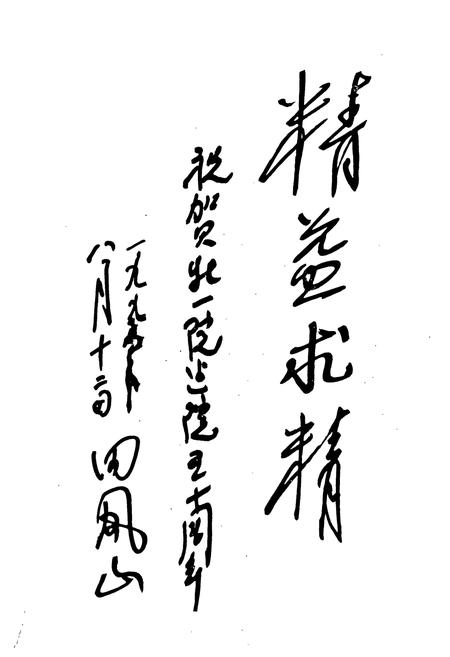 精益求精
祝贺北一院建院五十周年
一九九五年
八月十二日 田凤山